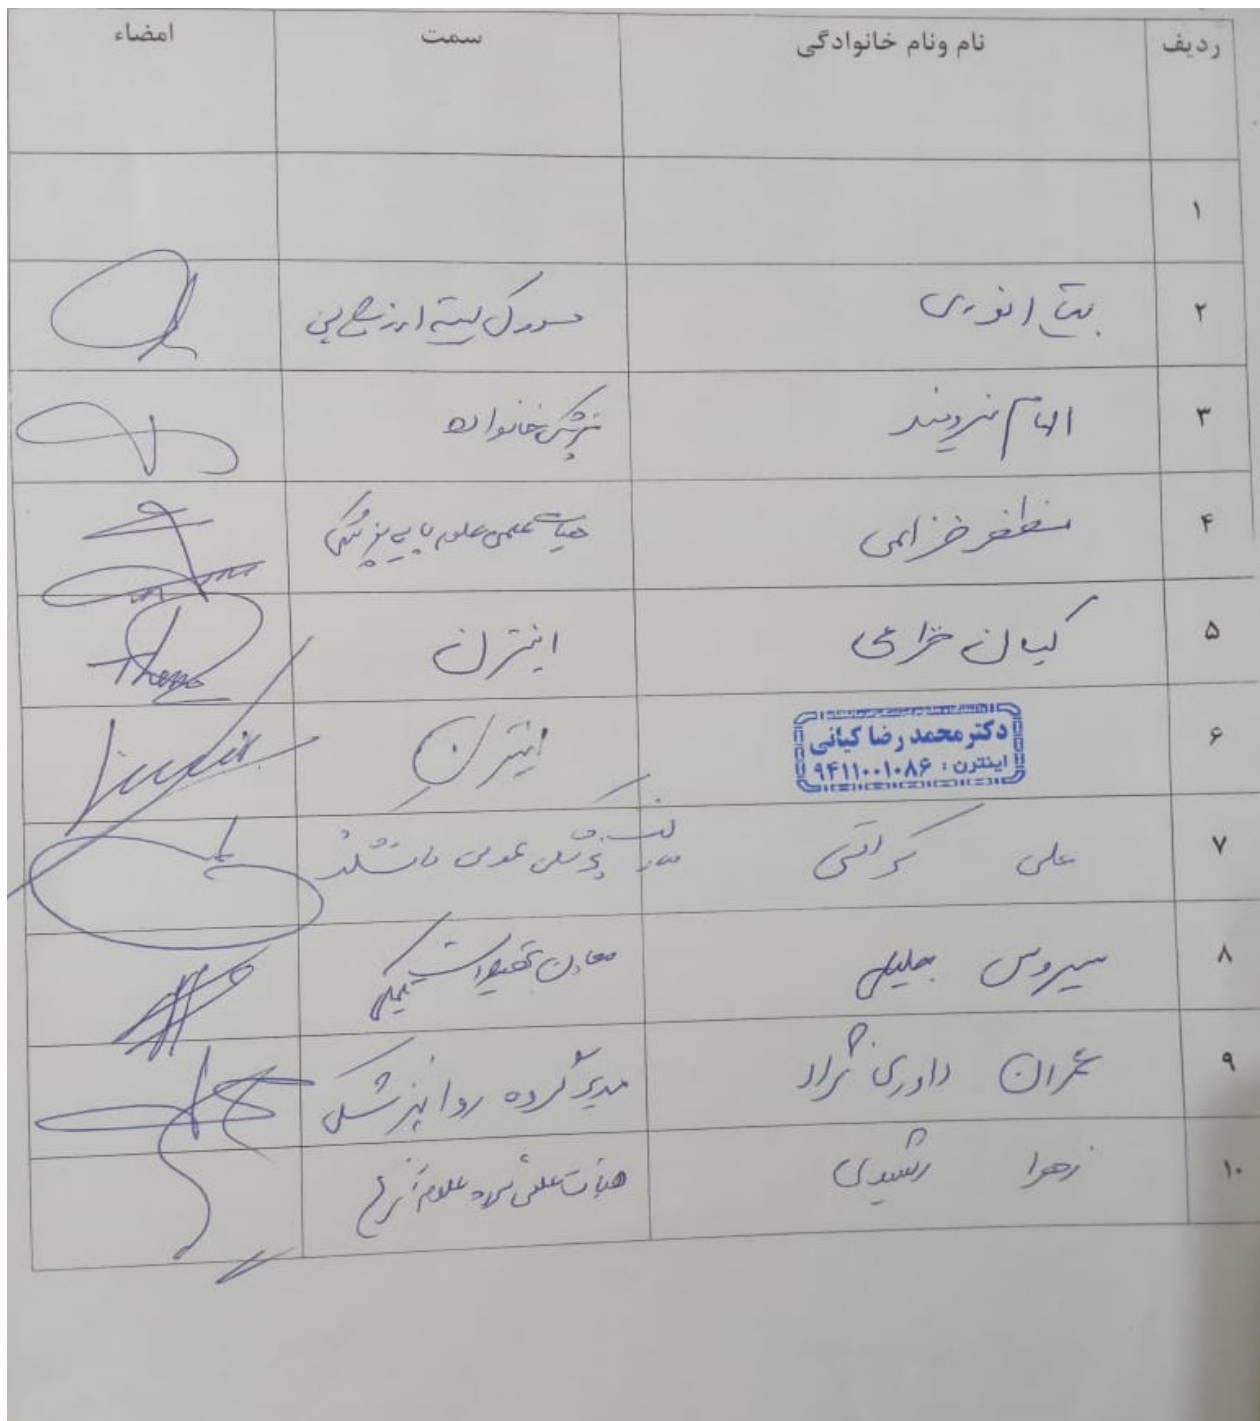 ردیف نام ونام خانوادگی سمت امضاء
۱
۲ انوری
۳ الهام نیرومند پزشکی خانواده
۴ مظفر خزاعی هیات علمی علوم پایه پزشکی
۵ کیان خزاعی اینترن
۶ دکتر محمد رضا کیانی اینترن
اینترن : ۹۴۱۱۰۰۱۰۸۶
۷ علی پزشکی عمومی دانشکده
۸ سیروس جلیلی معاون تحصیلات تکمیلی
۹ عمران داوری نژاد مدیر گروه روانپزشکی
۱۰ زهرا رشیدی هیات علمی گروه علوم تشریح